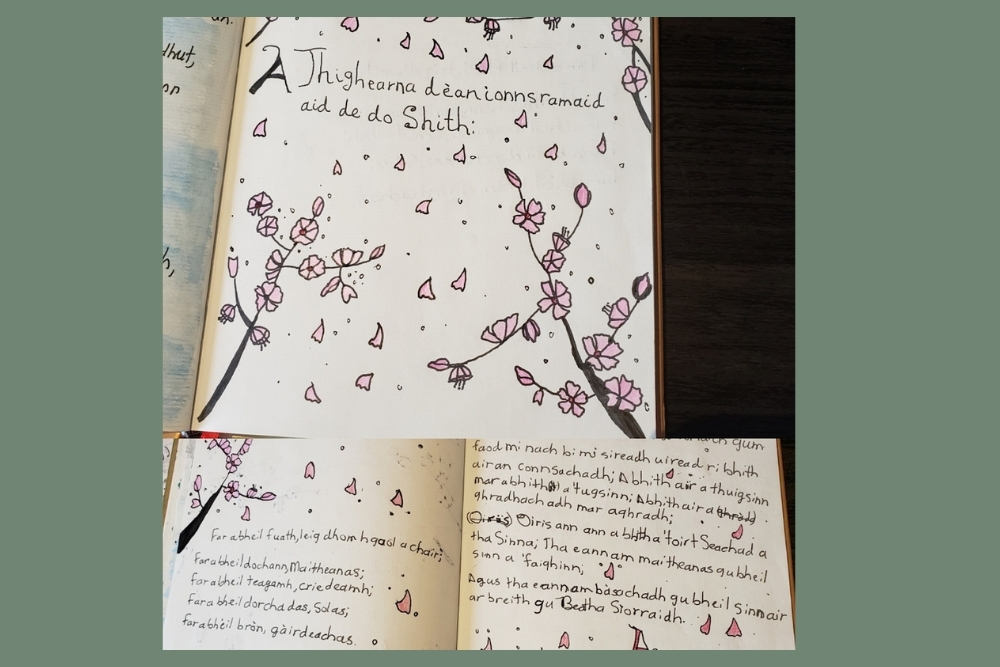 un.
dhut,
nn
h,
A Thighearna dèan ionnsramaid
aid de do Shith:
Far a bheil fuath, leig dhomh gaol a chair;
Far a bheil dochann, Maitheanas;
far a bheil teagamh, criedeamh;
far a bheil dorchadas, Solas;
far a bhèil bròn, gàirdeachas.
gum
faod mi nach bi mi sireadh uiread ri bhith
air an connsachadh; A bhith air a thuigsinn
mar a bhith a 'tugsinn; A bhith air a
ghradhachadh mar aghradh;
Oiris ann an a bhith a 'toirt Seachad a
tha Sinna; Tha e ann am maitheanas gu bheil
sinn a 'faighinn;
Agus tha e ann am bàsachadh gu bheil sinn air
ar breith gu Beatha Siorraidh.
A